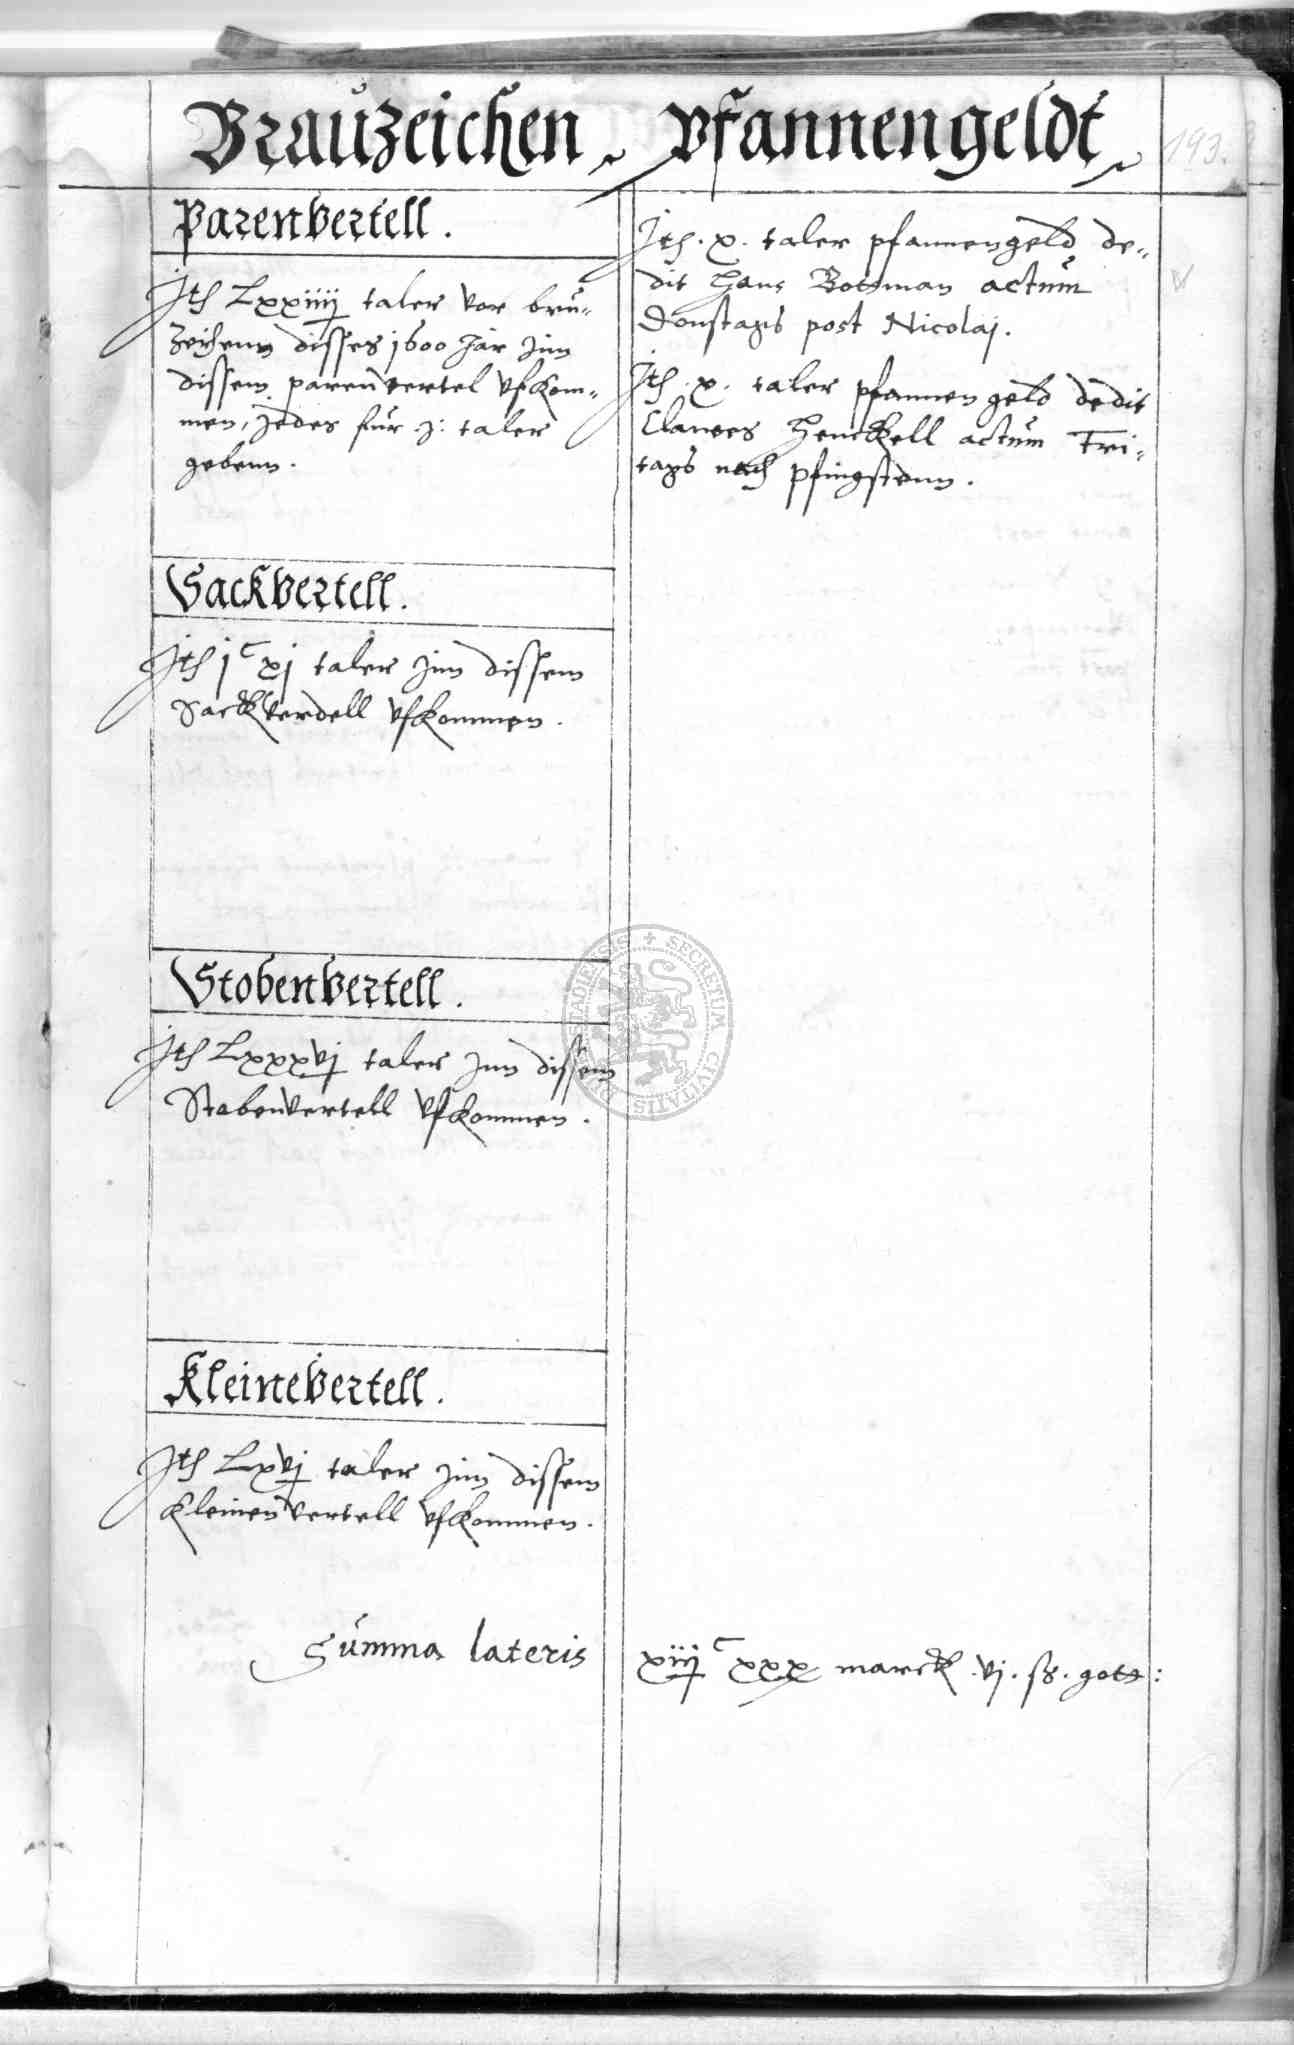 Brauzeichen
Parenvertell.
Jtem Lxxiiij taler vor bru-
zeichenn disses 1600 Jar jnn
dissem parenvertel vfkom-
men, jedes fur j: taler
gebenn.
Sackvertell.
Jtem jᶜ xj taler jnn dissem
Sackverdell vfkommen.
Stobenvertell.
Jtem Lxxxvj taler jnn dissem
Stobenvertell vfkommen.
Kleinevertell.
Jtem Lxvj taler jnn dissem
kleinenvertell vfkommen.
Summa lateris
Pfannengeldt
193.
Jtem .x. taler pfannengeld de-
dit Hans Botman actum
Donstags post Nicolaj.
Jtem .x. taler pfannengeld dedit
Clawes Henckell actum Fri-
tags nach pfingstenn.
xiiijᶜ xxx marck .vj. ß. gott:
SECRETUM CIVITATIS